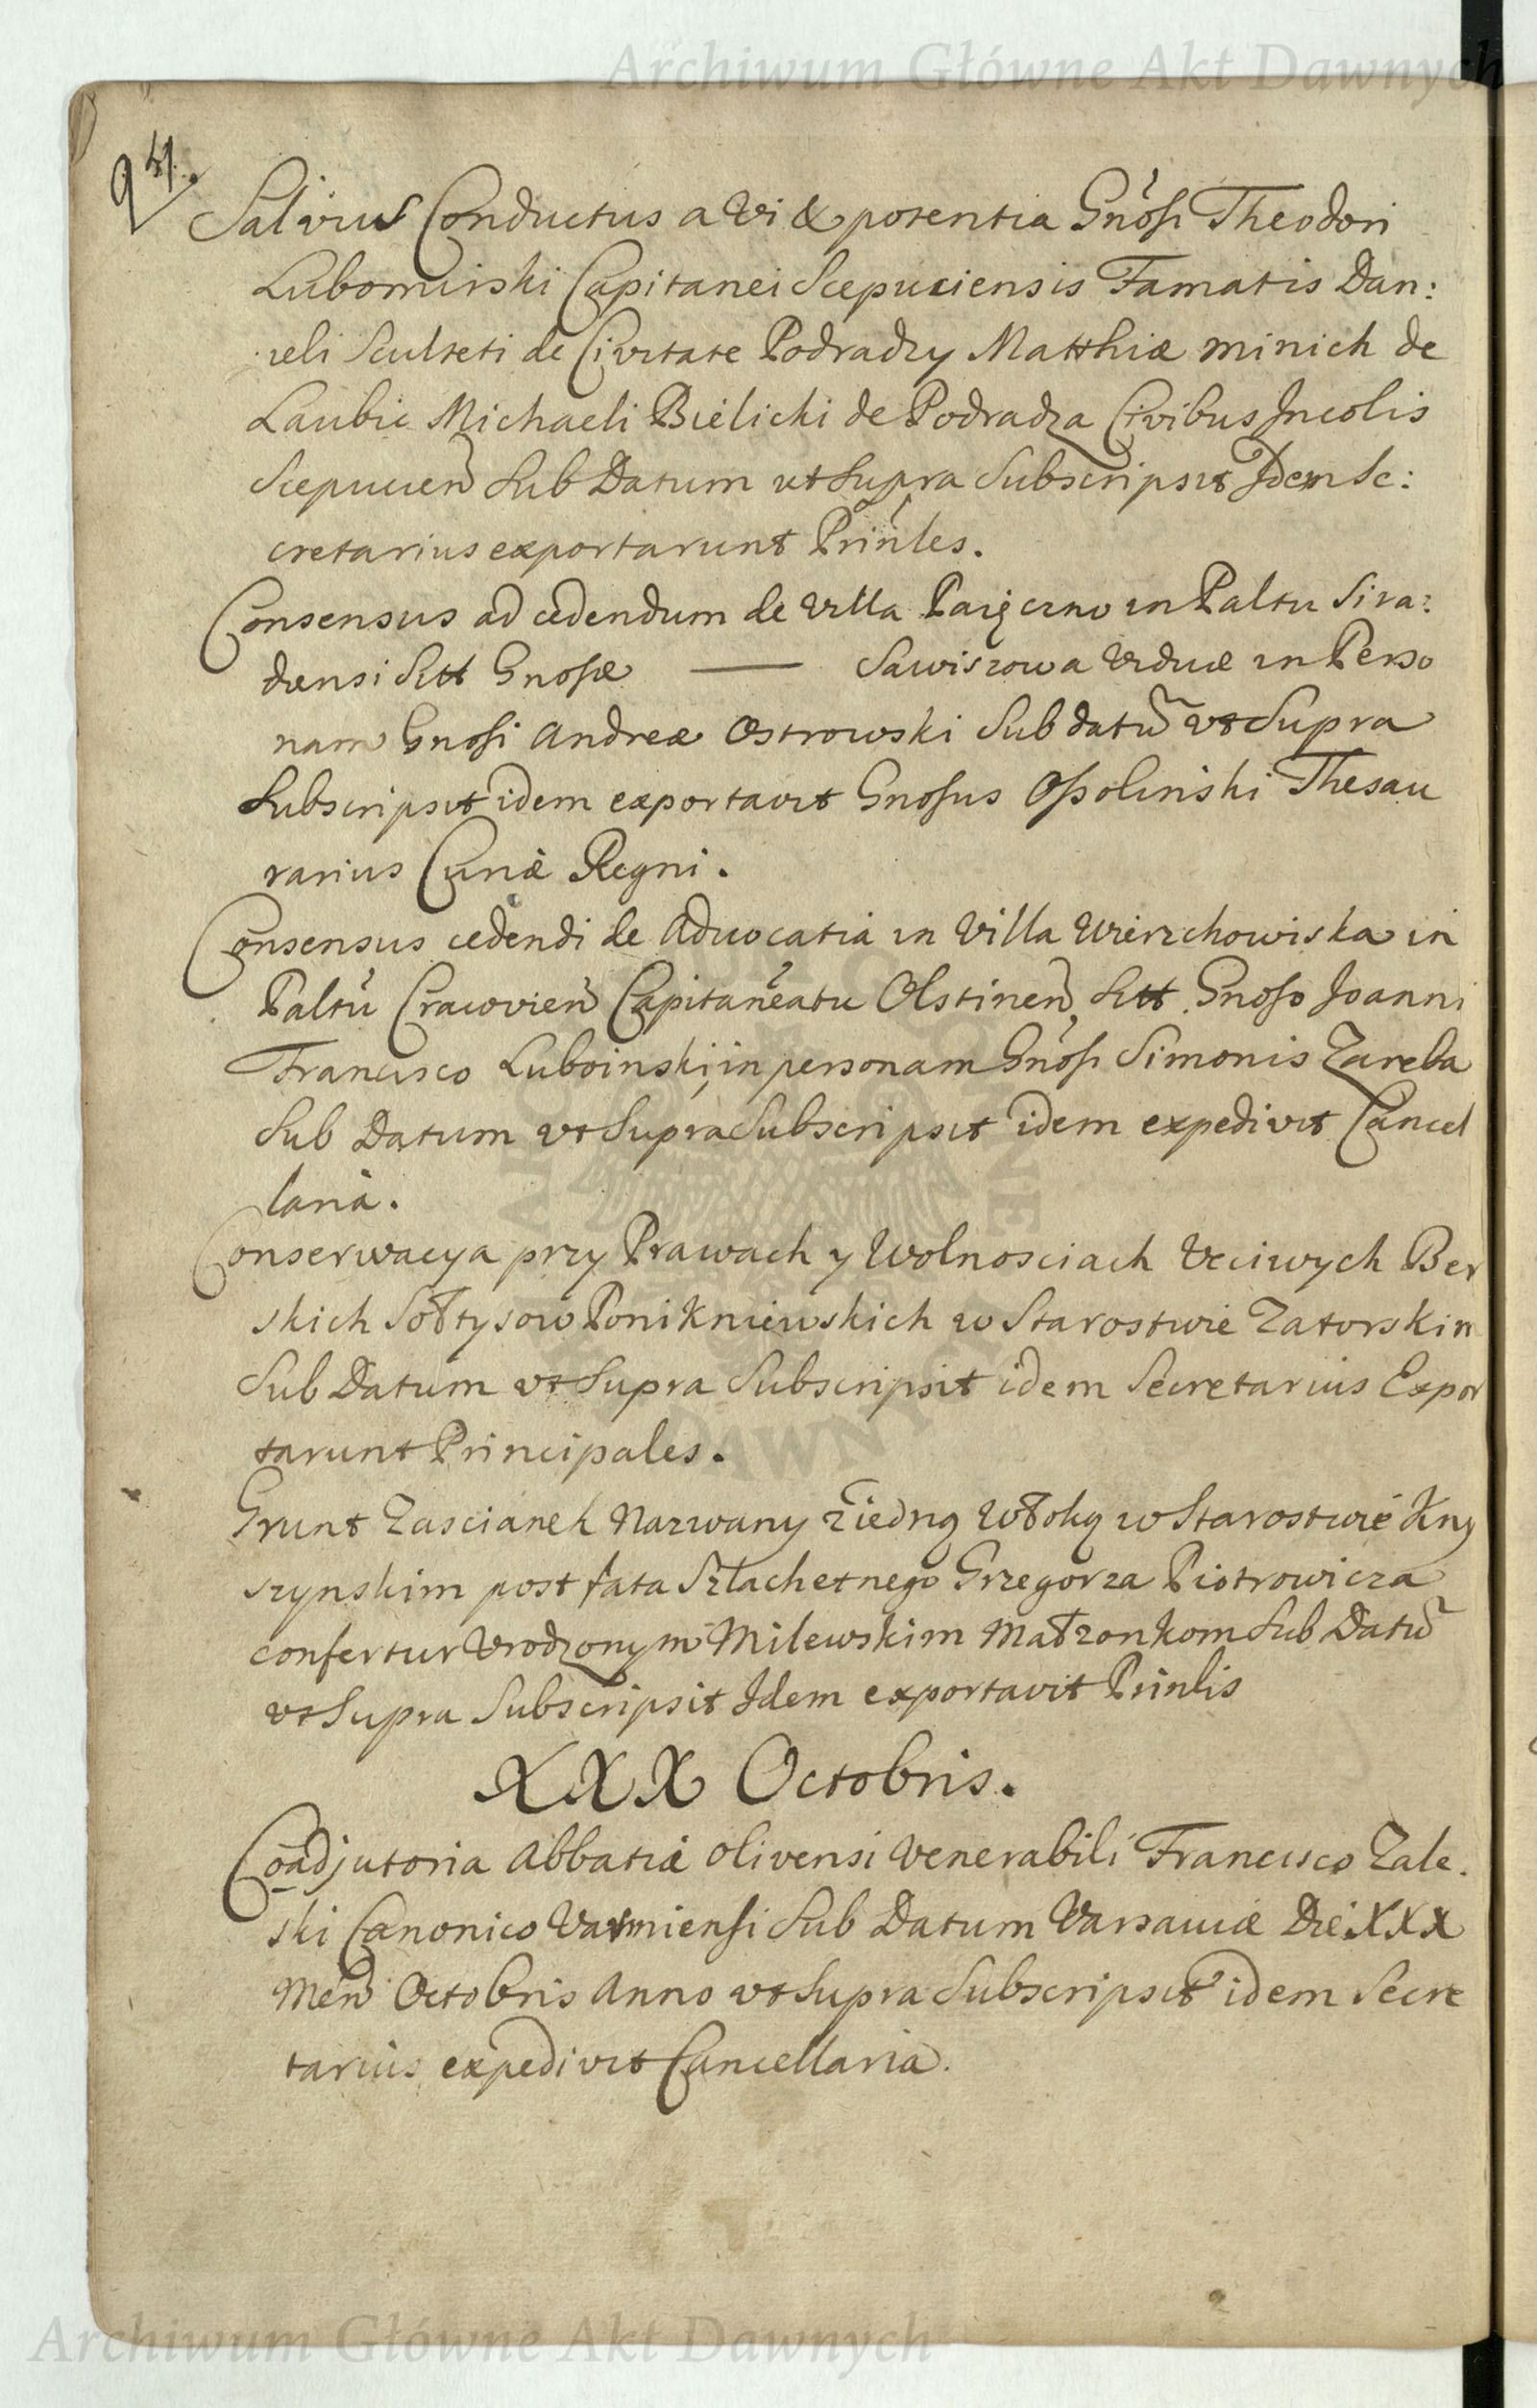 Archiwum Główne Akt Dawnych
94.
Salvus Conductus a Vi & potentia Gnosi Theodori
Lubomirski Capitanei Scepusiensis Famatis Dan:
ieli Sculteti de Civitate Podradzy Matthiæ Minich de
Laubic Michaeli Bielicki de Podradza Civibus Incolis
Scepusien Sub Datum ut Supra Subscripsit Idem Se:
cretarius exportarunt Prinles.
Consensus ad cedendum de Villa Pajęczno in Paltu Sira:
diensi Stt Gnosæ ——— Sawiszowa Viduæ in Perso
nam Gnosi Andreæ Ostrowski Sub datu vt Supra
Subscripsit idem exportavit Gnosus Ossolinski Thesau
rarius Curiæ Regni.
Consensus cedendi de Advocatia in Villa Wierzchowiska in
Paltu Cracovien Capitaneatu Olstinen, Stt. Gnoso Joanni
Francisco Luboinski, in personam Gnosi Simonis Zareba
Sub Datum vt Supra Subscripsit idem expedivit Cancel
laria.
Conserwacya przy Prawach y Wolnosciach Vcciwych Ber
skich Sołtysow Ponikniewskich w Starostwie Zatorskim
Sub Datum vt Supra Subscripsit idem Secretarius Expor
tarunt Principales.
Grunt Zascianek Nazwany z iedną Włoką w Starostwie Kny
szynskim post fata Szlachetnego Grzegorza Piotrowicza
confertur Vrodzonym Milewskim Małzonkom Sub Datu
vt Supra Subscripsit Idem exportavit Prinlis
XXX Octobris.
Coadjutoria Abbatiæ Olivensi Venerabili Francisco Zale.
ski Canonico Varmiensi Sub Datum Varsaviæ Die XXX
Men Octobris Anno vt Supra Subscripsit idem Secre
tarius expedivit Cancellaria.
Archiwum Główne Akt Dawnych